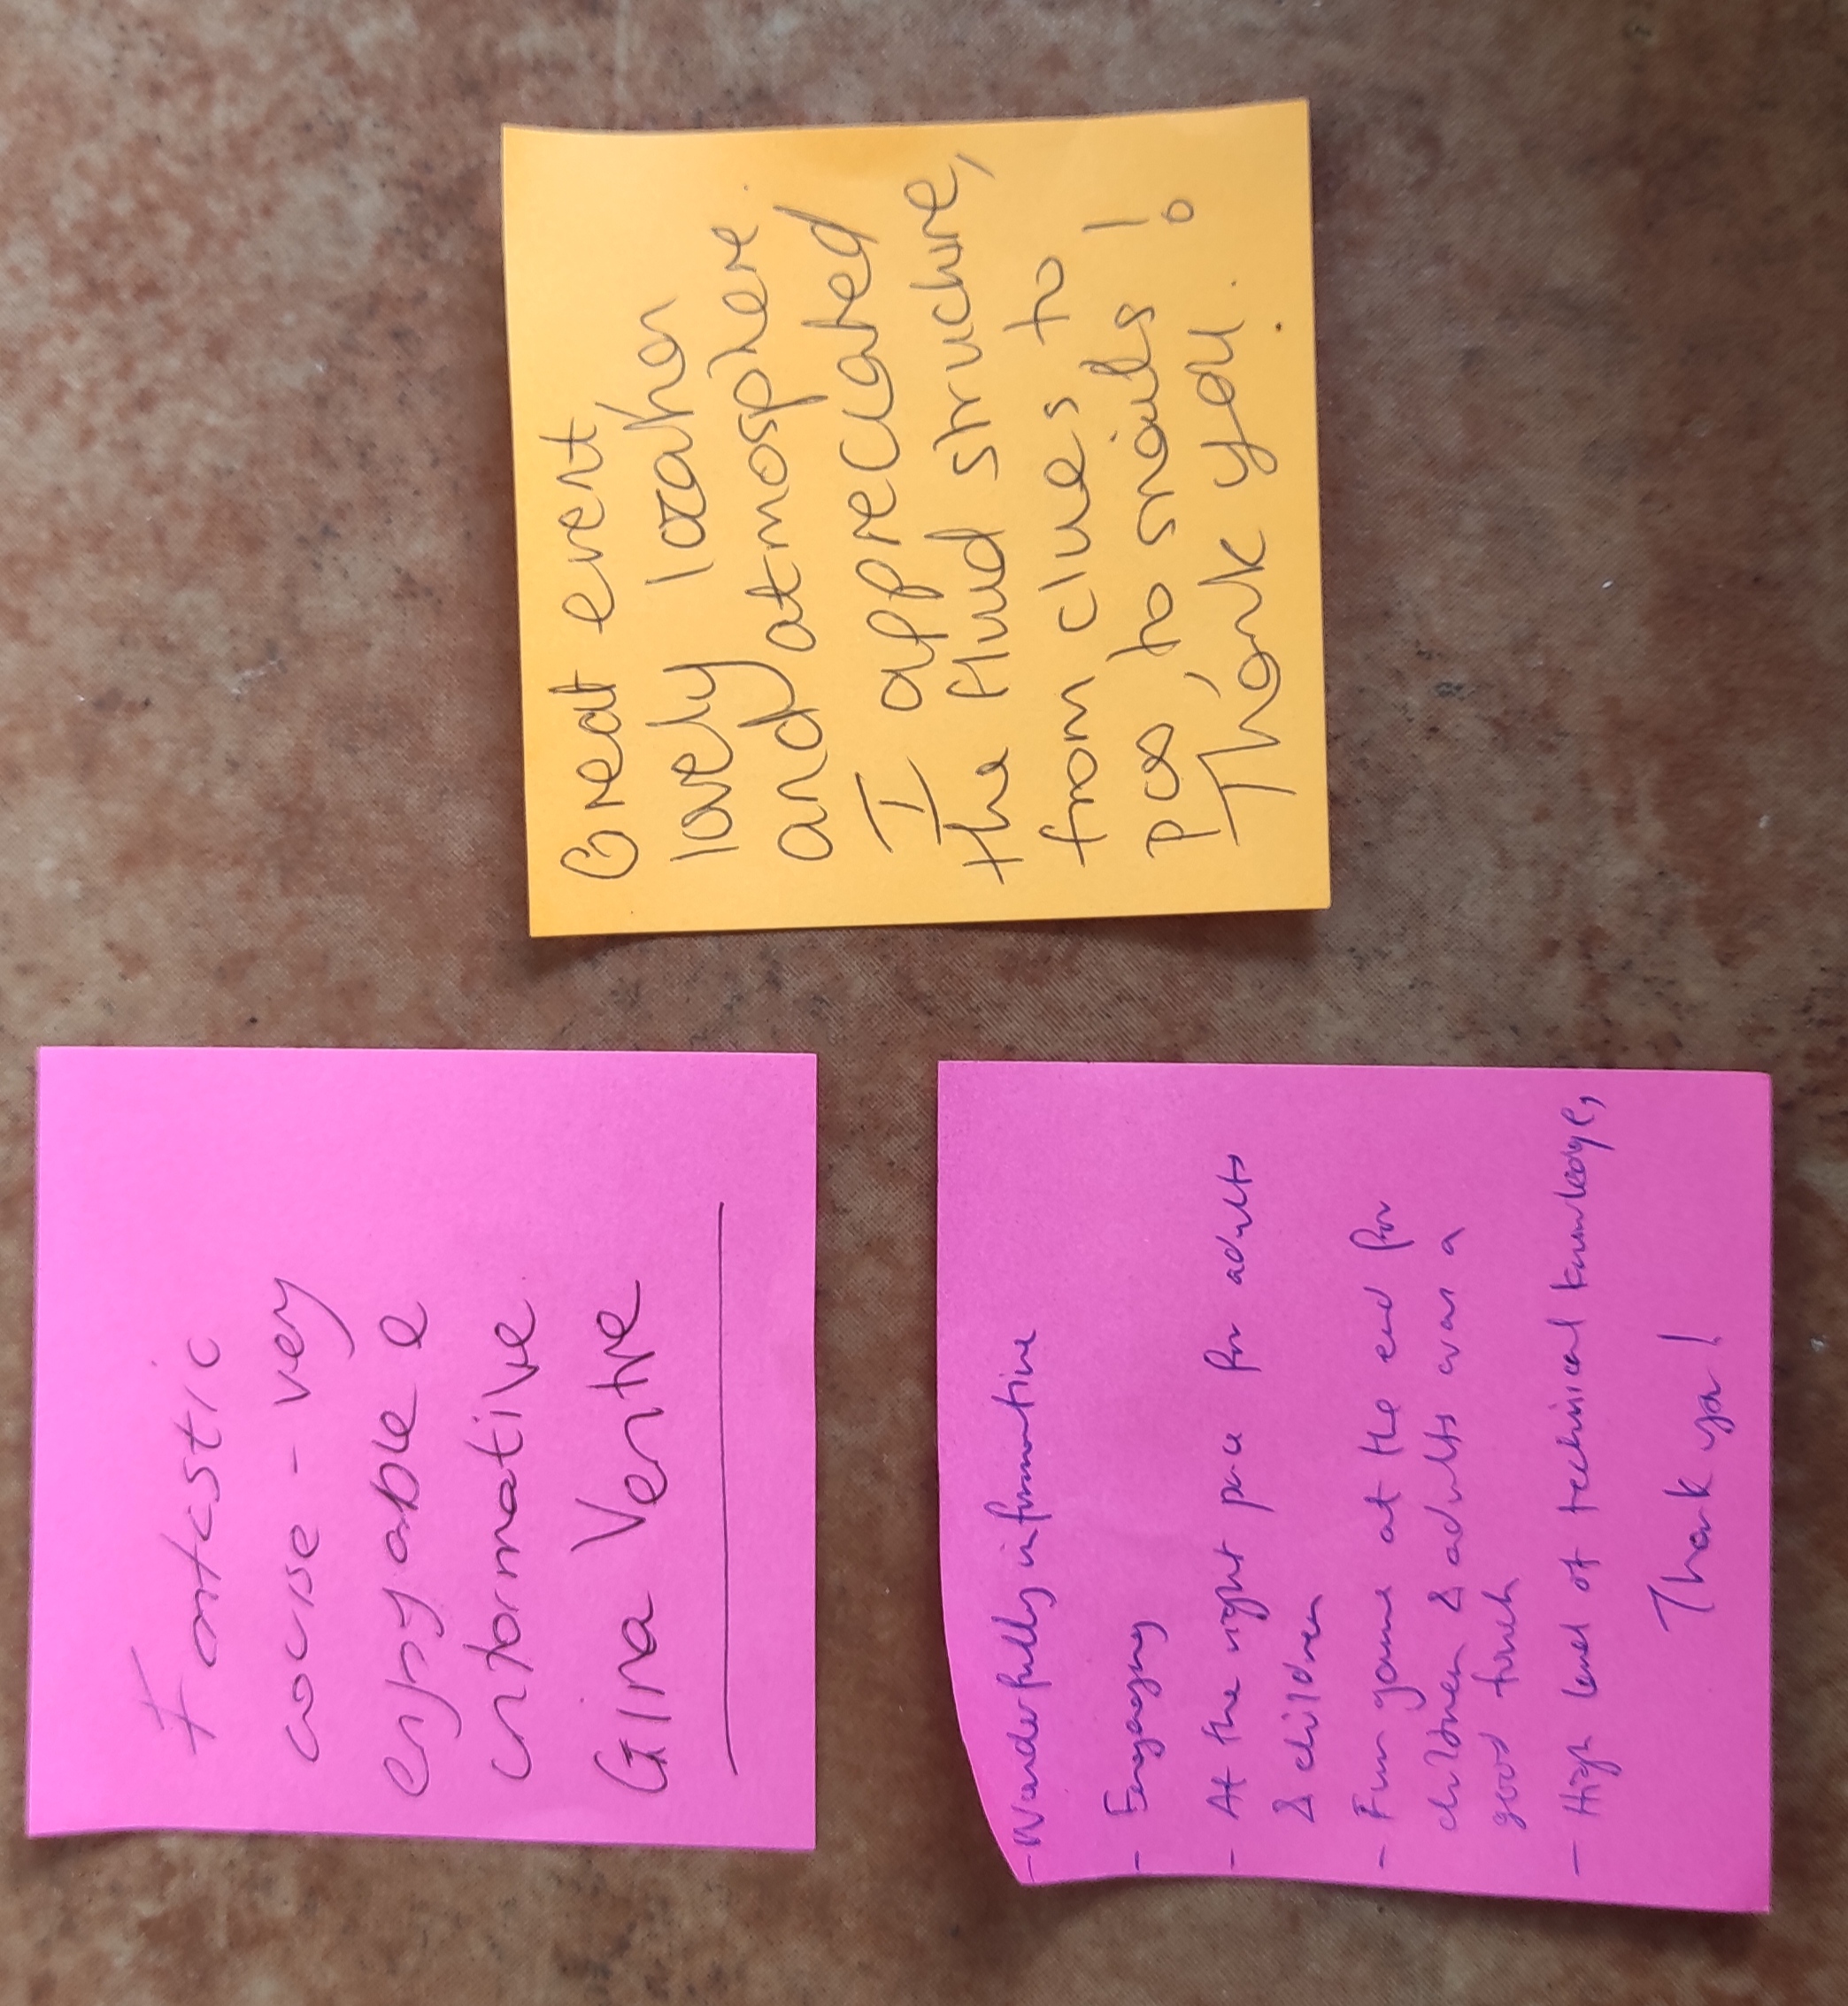 Fantastic
course - very
enjoyable &
informative
Gina Ventre
Great event,
lovely location
and atmosphere.
I appreciated
the fluid structure,
from clues to
pcs to snails!
Thank you.
- Wonderfully informative
- Engaging
- At the right pace for adults
& children
- Fun game at the end for
children & adults was a
good touch
- High level of technical knowledge,
Thank you!